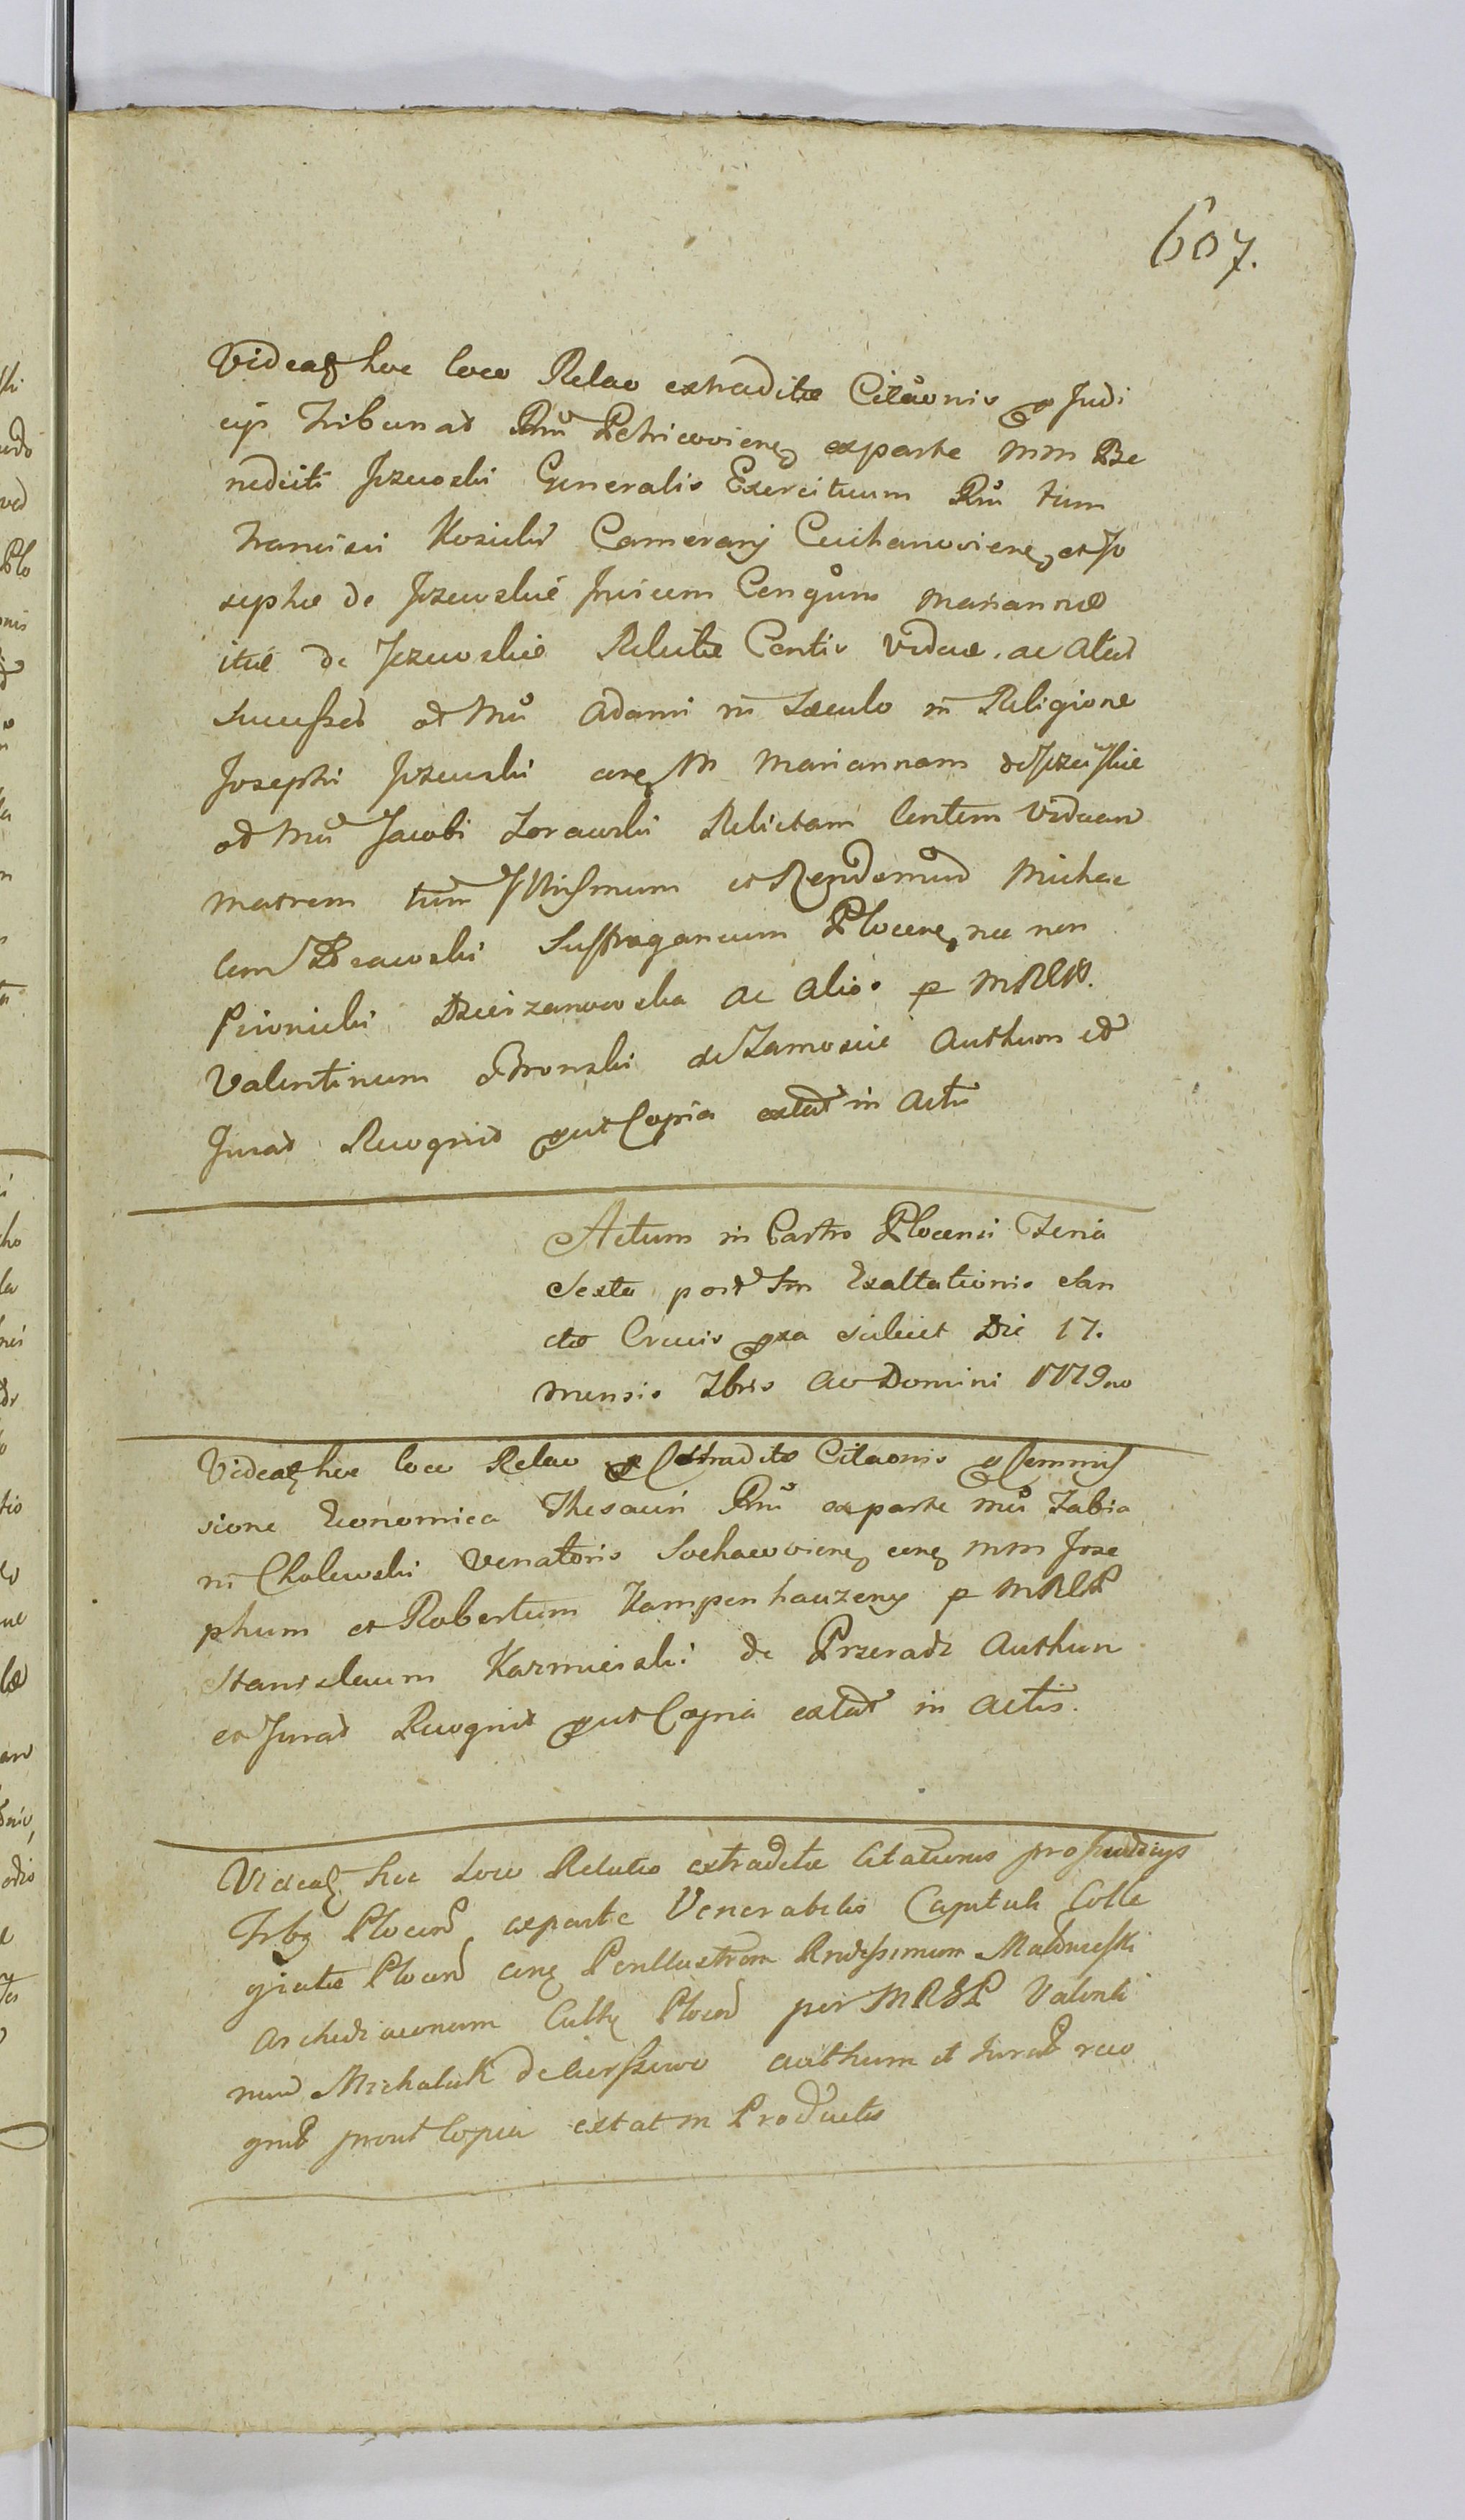 607.
Videat hoc loco Relao extraditæ Citaonis pro Judi
cijs Tribunat Rni Petricoviens exparte MM Be
nedicti Jezewski Generalis Exercituum Rni tum
Francisci Kosicki Camerarij Ciechanoviens et Jo
sephæ de Jezewskie Invicem Congum Mariannæ
itid de Jezewskie Relictæ Viduæ ac Aliud
Successed od Mfi Adami in Sæculo in Religione
Josephi Jezewski cone M Mariannam de Jezewskie
od Mfi Jacobi Zorawski Relictam Viduam
Matrem tum Illrissmum et Rendsmum Michae
lem Suffraganeum Plocens nec non
Dzierzanowska ac Alios p MRLP.
Valentinum Bronski de Zamoscie Authum et
Jurat Recognit put Copia extat in Actis
Actum in Castro Plocensi Feria
Sexta post Ftm Exaltationis San
ctæ Crucis pxa scilicet Die 17.
Mensis 7bris Ao Domini 1779no
Videat hoc loco Relao Extraditæ Citaonis pro Commis
sione Economica Thesauri Rni exparte Mfi Fabia
ni Cholewski Venatoris Sochacoviens cone MM Jose
phum et Robertum Kampenhauzeny p MRLP
Stanislaum Kazmierski de Przeradz Authum
et Jurat Recognit put Copia extat in Actis.
Videat hoc Loco Relatio extraditæ Citationis pro Judicijs
Trbg Plocens exparte Venerabilis Capituli Colle
giatæ Plocens cone Perillustrem Rndissimum
Archidiaconum Plocens per MRLP Valenti
num Michalak de authum et Jurat reco
gnit prout Copia extat in Productis